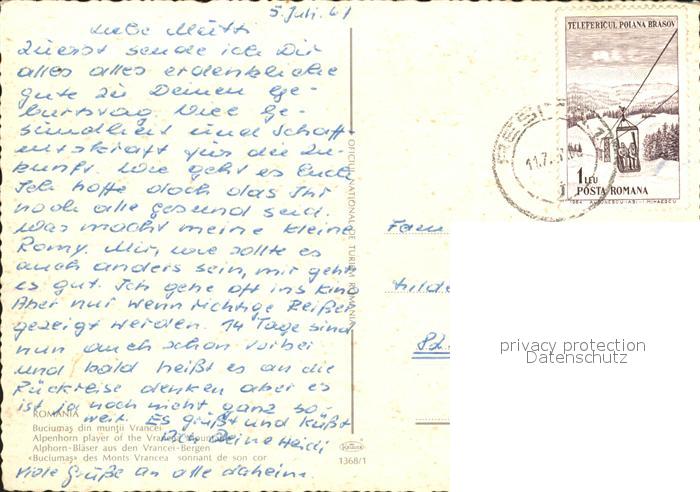 5. Juli. 61
Liebe Mutti
Zuerst sende ich Dir
alles alles erdenkliche
gute zu Deinen Ge-
burtstag Viele Ge-
sundheit und Schaff-
enskraft für die Zu-
kunft. Wie geht es Euch
Ich hoffe doch das Ihr
noch alle gesund seid.
Was macht meine kleine
Romy. Mir, wie sollte es
auch anders sein, mir geht
es gut. Ich gehe oft ins Kino
Aber nur wenn richtige Reißer
gezeigt werden. 14 Tage sind
nun auch schon vorbei
und bald heißt es an die
Rückreise denken aber es
ist ja noch nicht ganz so-
weit. Es grüßt und küßt
Dich Deine Heidi
viele Grüße an alle daheim.
ROMANIA
Buciumaș din munții Vrancei
Alpenhorn player of the Vrancea Mountains
Alphorn-Bläser aus den Vrancei-Bergen
«Buciumaș» des Monts Vrancea sonnant de son cor
1368/1
OFICIUL NATIONAL DE TURISM ROMANIA
TELEFERICUL POIANA BRASOV
1 LEU
POSTA ROMANA
11.7.
Fam
privacy protection
Datenschutz